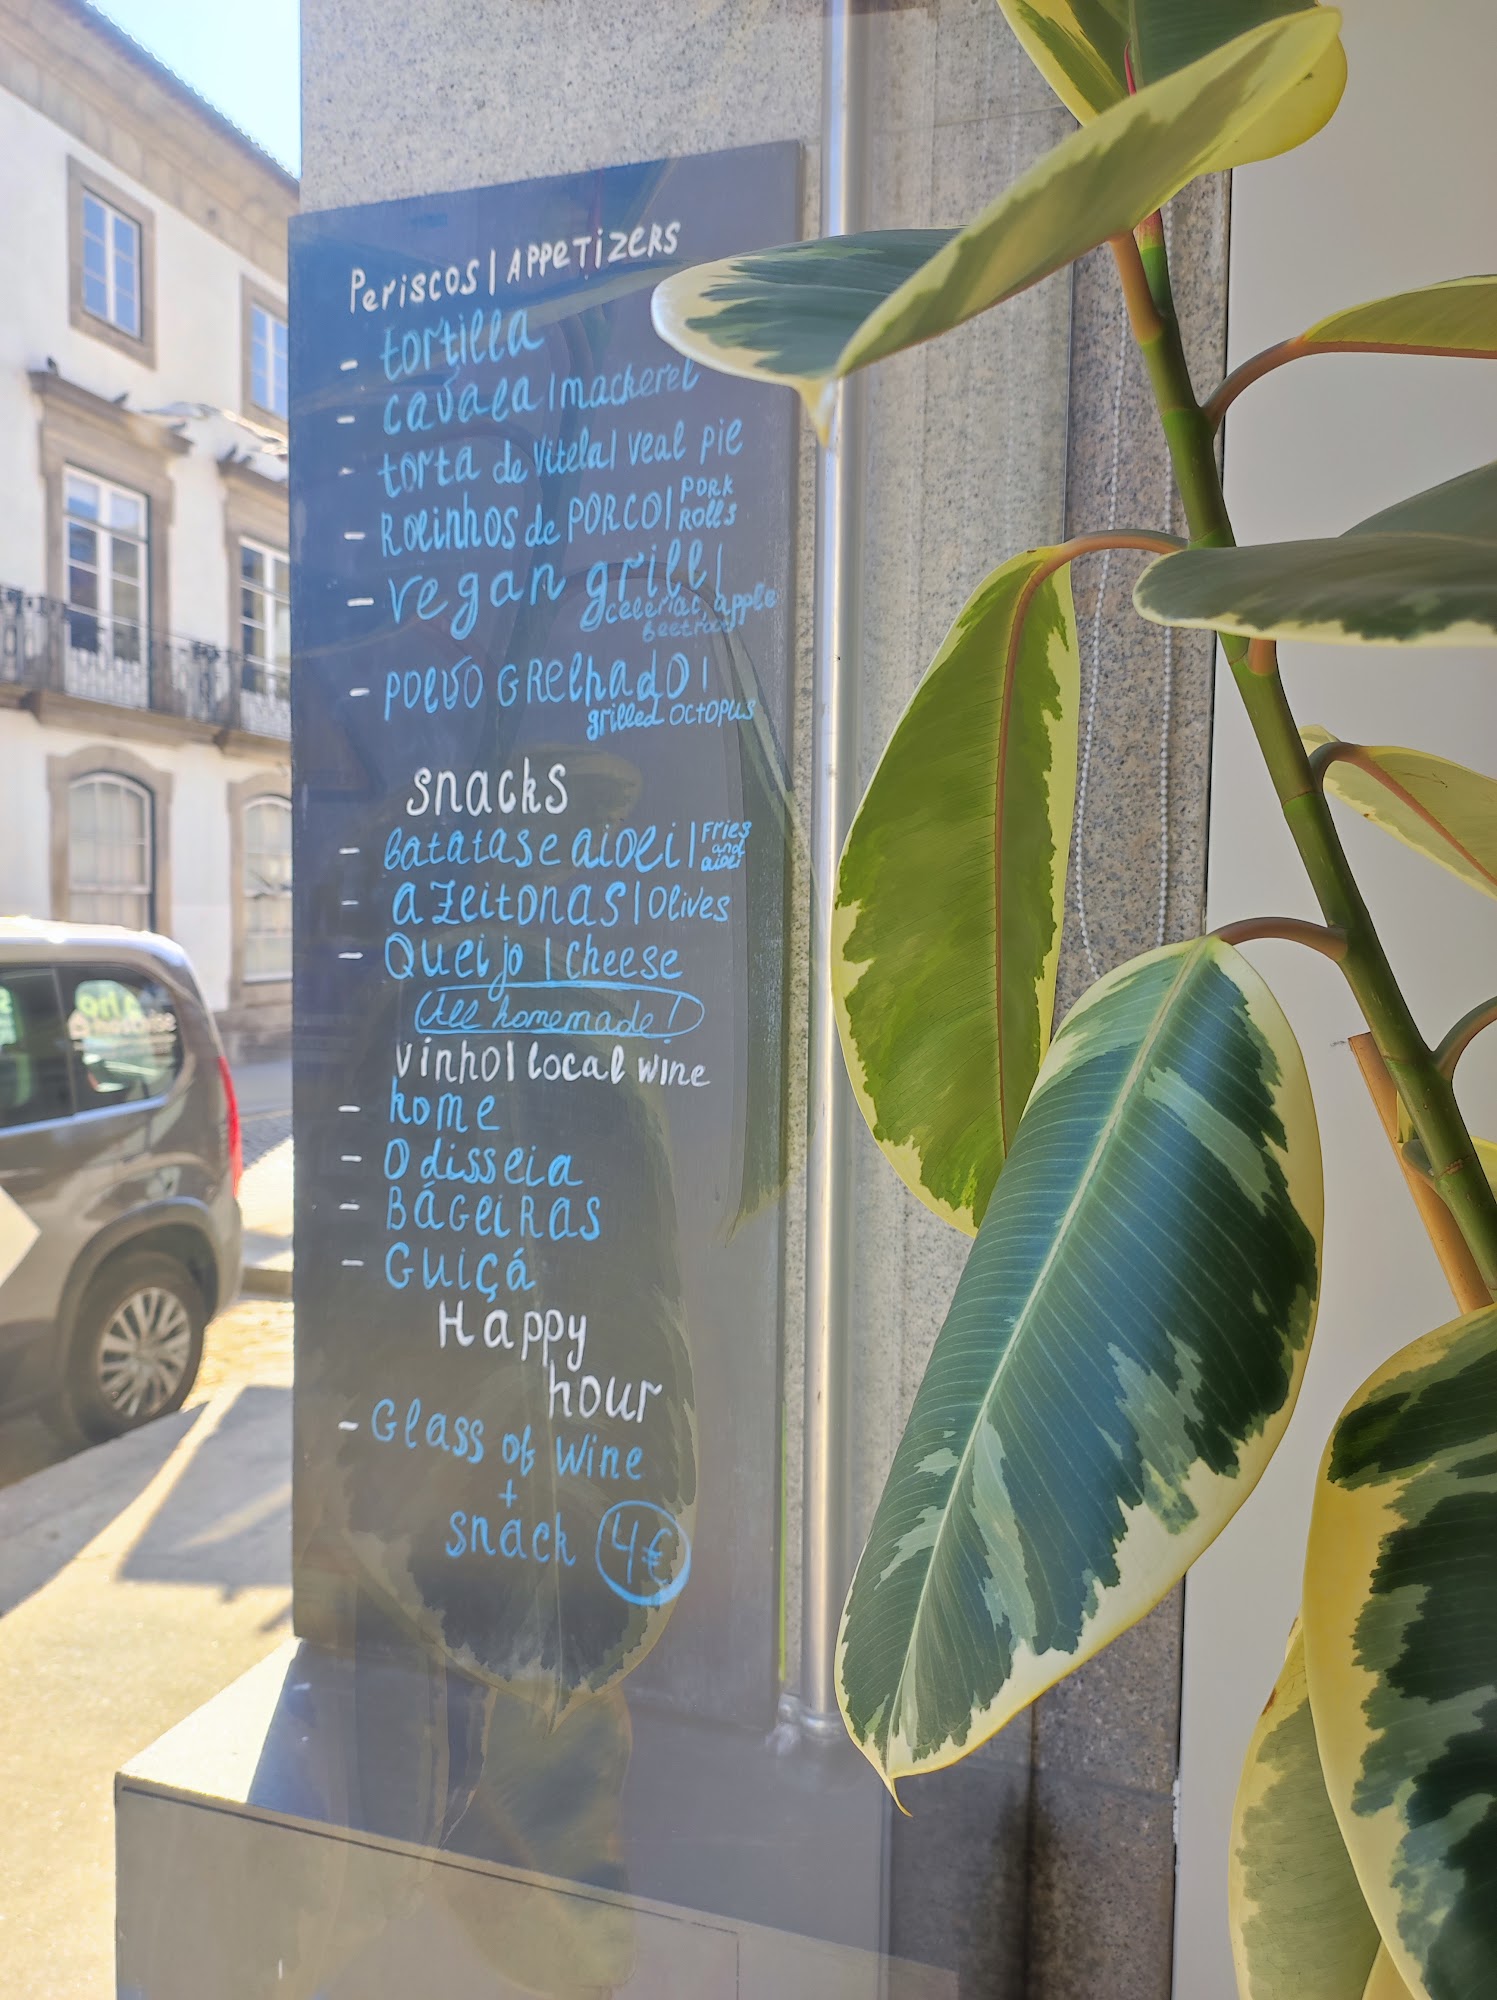 Periscos | Appetizers
- tortilla
- cavala | mackerel
- torta de vitela | veal pie
- Rolinhos de PORCO | PORK ROLLS
- vegan grill |
celeriac, apple
beetroot
- POLVO GRelhadO |
grilled OCTOPUS
snacks
- batatas e aioli | Fries and aioli
- azeitonas | Olives
- Queijo | Cheese
All homemade!
vinho | local wine
- home
- Odisseia
- Bágeiras
- Guiçá
Happy
hour
- Glass of wine
+
snack 4€